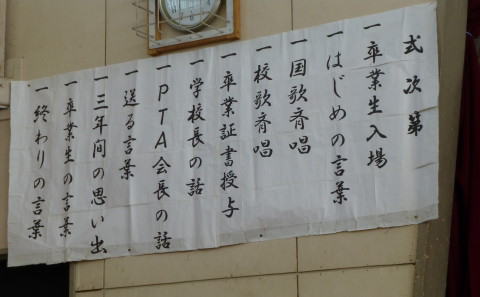 式次第
一 卒業生入場
一 はじめの言葉
一 国歌斉唱
一 校歌斉唱
一 卒業証書授与
一 学校長の話
一 PTA会長の話
一 送る言葉
一 三年間の思い出
一 卒業生の言葉
一 終わりの言葉